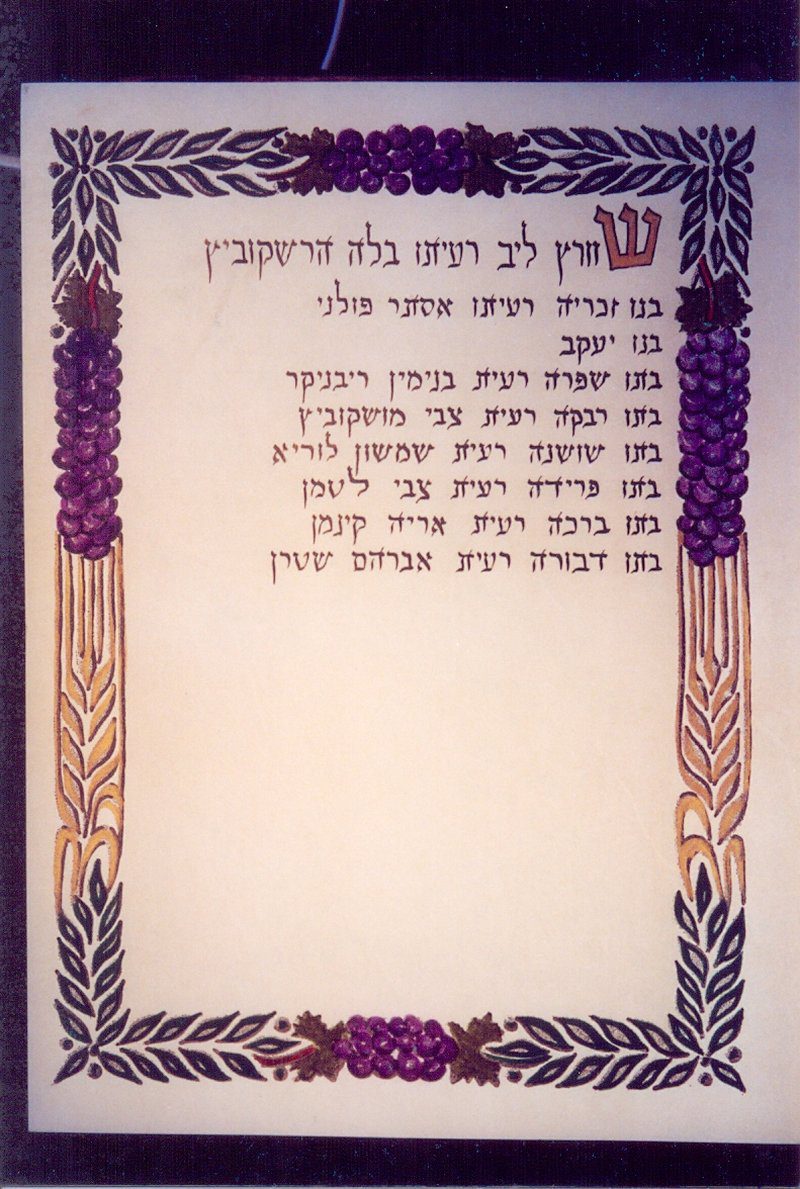 שוורץ ליב רעיתו בלה הרשקוביץ
בנו זכריה רעיתו אסתר פולני
בנו יעקב
בתו שפרה רעית בנימין ריבניקר
בתו רבקה רעית צבי מושקוביץ
בתו שושנה רעית שמשון לוריא
בתו פרידה רעית צבי ליטמן
בתו ברכה רעית אריה קינמן
בתו דבורה רעית אברהם שטרן